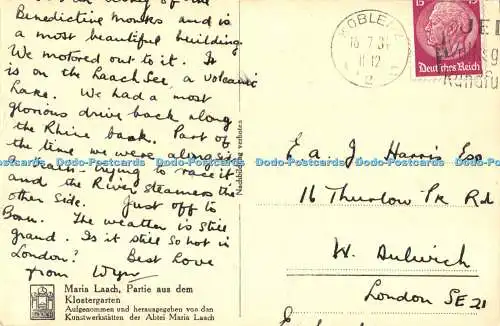 Benedictine Monks and is
a most beautiful building.
We motored out to it. It
is on the Laach See, a volcanic
Lake. We had a most
glorious drive back along
the Rhine bank. Part of
the time we were alongside
a train - trying to race it
and the River steamers the
other side. Just off to
Bonn. The weather is still
grand. Is it still so hot in
London? Best Love
from Wyn
Maria Laach, Partie aus dem
Klostergarten
Aufgenommen und herausgegeben von den
Kunstwerkstätten der Abtei Maria Laach
Nachbildung verboten
KOBLENZ
18.7.34
11-12
2
15
Deutsches Reich
Rundfu
E a J Harris Esq
16 Thurlow Pk Rd
W. Dulwich
London SE 21
Dodo-Postcards Dodo-Postcards Dodo-Postcards Dodo-Postcards Dodo-Postcards